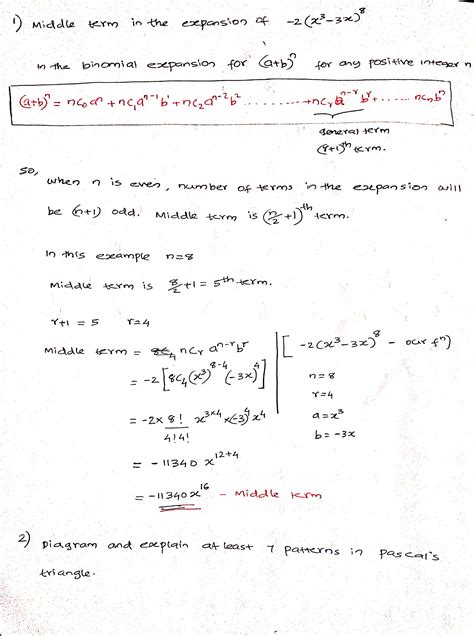 1) Middle term in the expansion of -2(x³-3x)⁸
In the binomial expansion for (a+b)ⁿ for any positive integer n
(a+b)ⁿ = nC₀aⁿ + nC₁aⁿ⁻¹b¹ + nC₂aⁿ⁻²b² .......... + nCᵣaⁿ⁻ʳbʳ + ...... nCₙbⁿ
general term
(r+1)th term.
So,
when n is even, number of terms in the expansion will
be (n+1) odd. Middle term is (n/2 + 1)th term.
In this example n=8
Middle term is 8/2 + 1 = 5th term.
r+1 = 5 r=4
Middle term = nCᵣ aⁿ⁻ʳbʳ
= -2[8C₄(x³)⁸⁻⁴(-3x)⁴]
= -2 × 8!/4!4! x³ˣ⁴ × (-3)⁴x⁴
= -11340 x¹²⁺⁴
= -11340x¹⁶ - Middle term
[-2(x³-3x)⁸ - our fⁿ]
n=8
r=4
a=x³
b=-3x
2) Diagram and explain at least 7 patterns in pascal's
triangle.